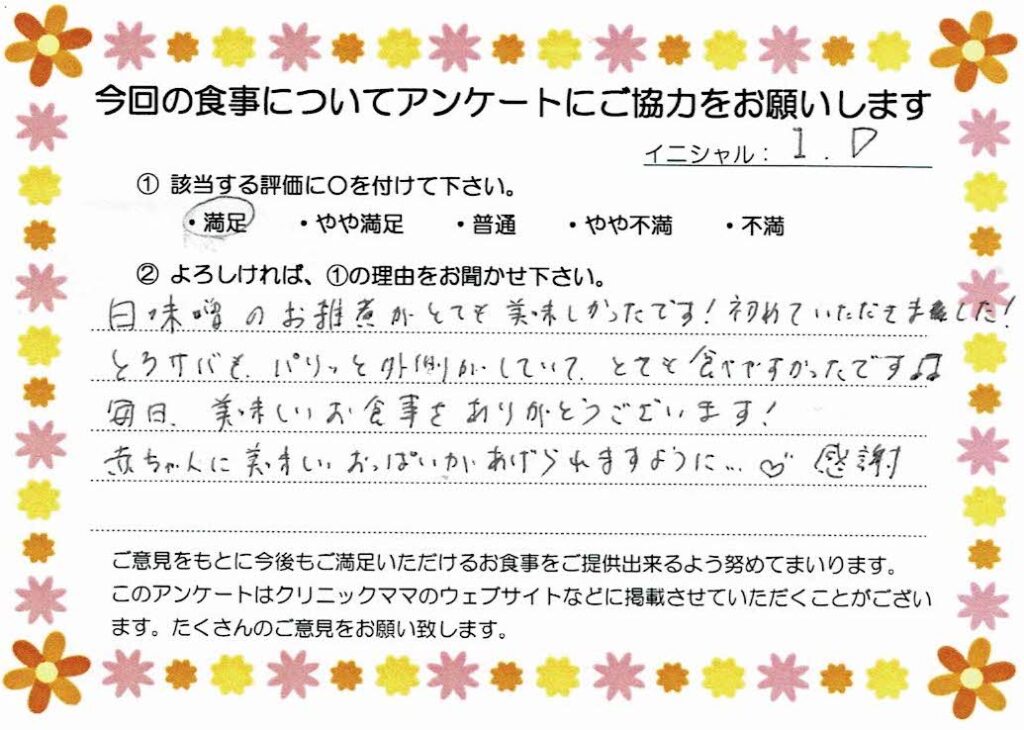 今回の食事についてアンケートにご協力をお願いします
イニシャル： I . D
① 該当する評価に〇を付けて下さい。
・満足 ・やや満足 ・普通 ・やや不満 ・不満
② よろしければ、①の理由をお聞かせ下さい。
白味噌のお雑煮がとても美味しかったです！初めていただきました！
とろサバも、パリッと外側がしていて、とても食べやすかったです♫
毎日、美味しいお食事をありがとうございます！
赤ちゃんに美味しいおっぱいがあげられますように…♡ 感謝
ご意見をもとに今後もご満足いただけるお食事をご提供出来るよう努めてまいります。
このアンケートはクリニックママのウェブサイトなどに掲載させていただくことがござい
ます。たくさんのご意見をお願い致します。